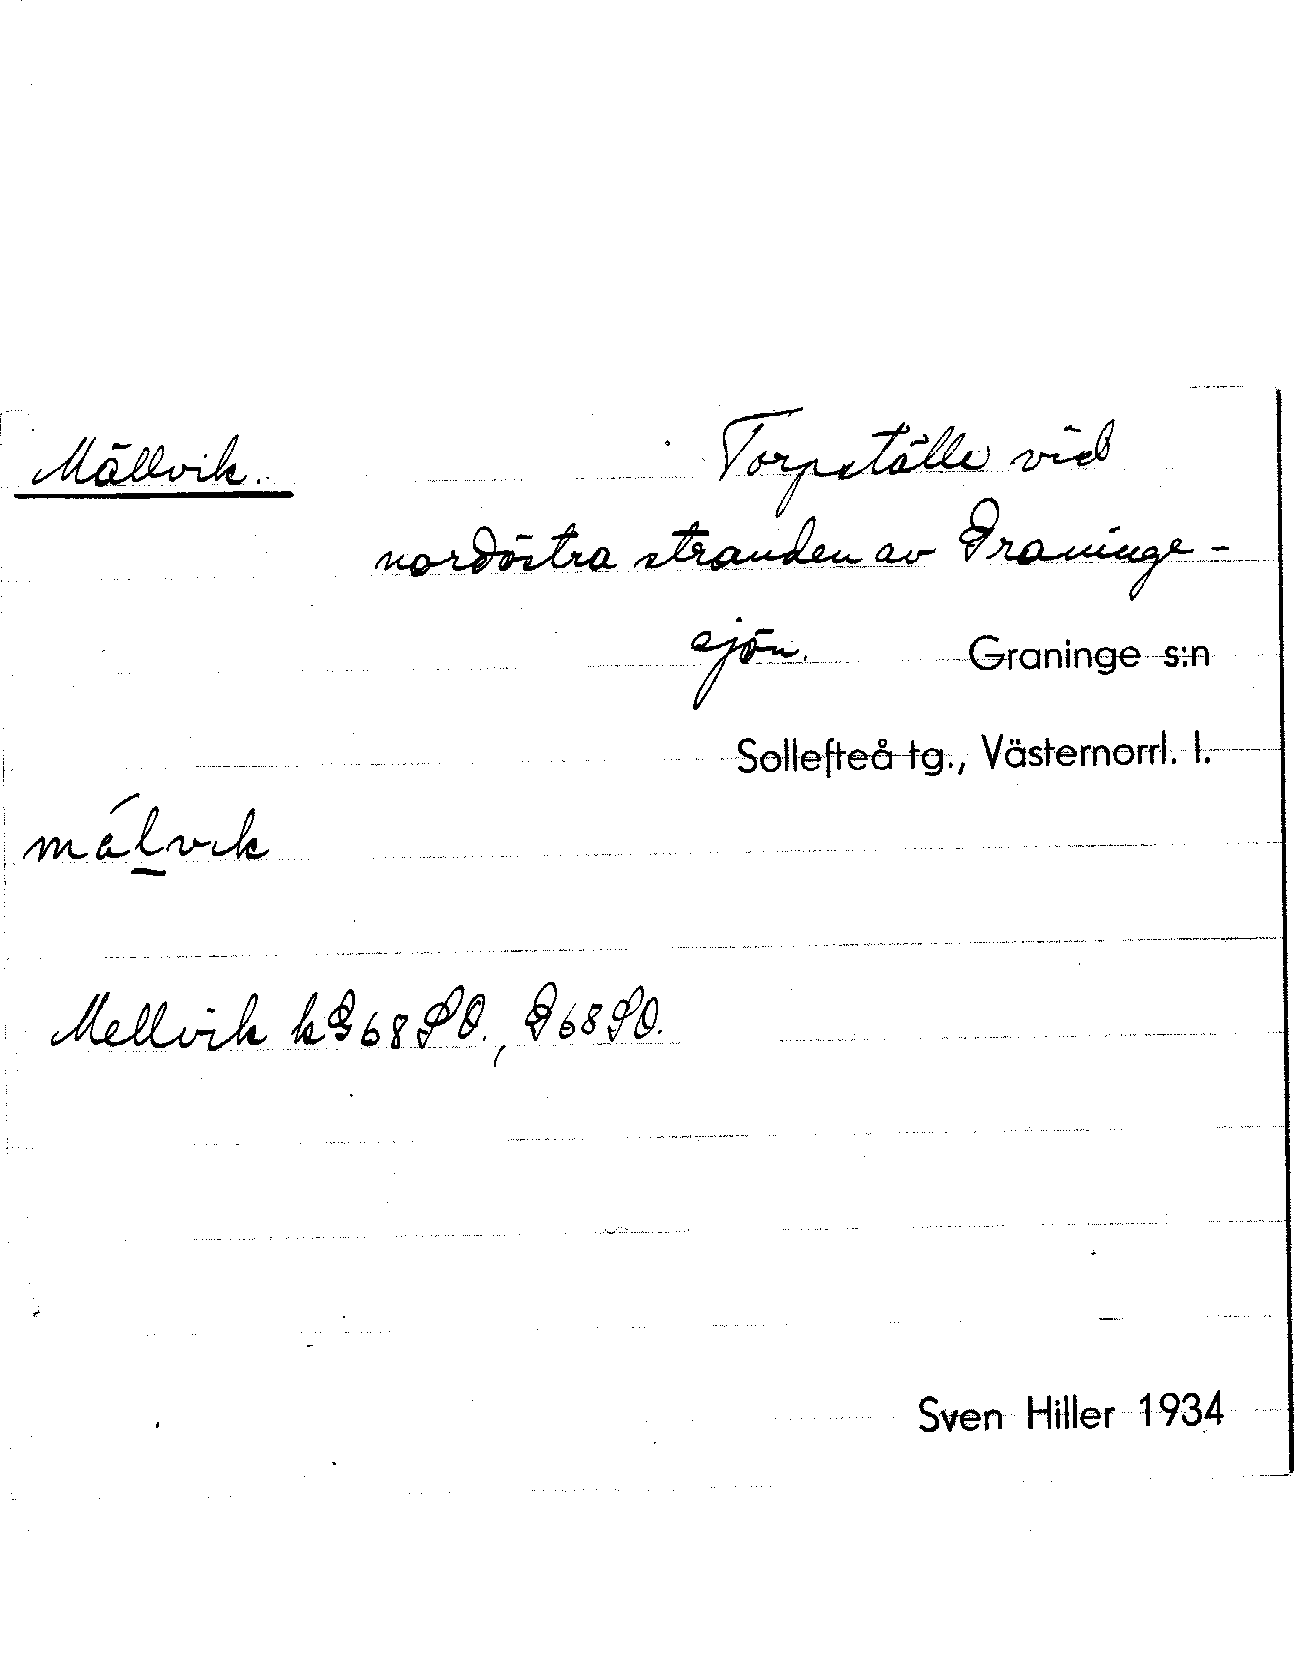 Mällvik. Torpställe vid
nordöstra stranden av Graninge-
sjön. Graninge s:n
Sollefteå tg., Västernorrl. l.
málvik
Mellvik kG68SO., G68SO.
Sven Hiller 1934